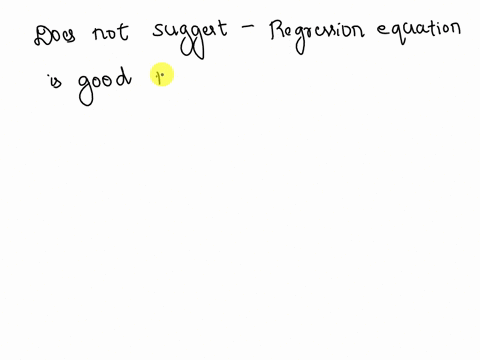 Does not suggest - Regression equation
is good